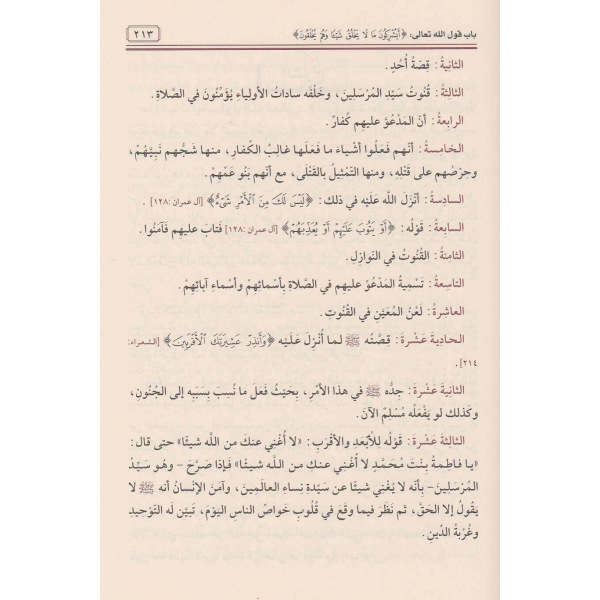 باب قول الله تعالى: ﴿أَيُشْرِكُونَ مَا لَا يَخْلُقُ شَيْئًا وَهُمْ يُخْلَقُونَ﴾ ٢١٣
الثانِيةُ: قِصّةُ أُحُدٍ.
الثالِثةُ: قُنُوتُ سَيِّدِ المُرْسَلِينَ، وَخَلْفَه ساداتُ الأولِياءِ يُؤَمِّنُونَ في الصَّلاةِ.
الرابِعةُ: أنّ المَدْعُوَّ عليهِم كُفّارٌ.
الخامِسةُ: أنّهم فَعَلُوا أشْياءَ ما فَعَلَها غالِبُ الكُفّارِ، منها شَجُّهم نَبِيَّهُمْ،
وحِرْصُهم على قَتْلِه، ومنها التّمْثِيلُ بالقَتْلَى، مع أنّهم بَنُو عَمِّهمْ.
السادِسةُ: أنْزَلَ اللَّه عَلَيْه في ذلك: ﴿لَيْسَ لَكَ مِنَ ٱلْأَمْرِ شَىْءٌ﴾ [آل عمران :١٢٨] .
السابِعةُ: قَوْلُه: ﴿أَوْ يَتُوبَ عَلَيْهِمْ أَوْ يُعَذِّبَهُمْ﴾ [آل عمران :١٢٨] فَتابَ عليهِم فآمَنُوا.
الثامِنةُ: القُنُوتُ في النَّوازِلِ.
التاسِعةُ: تَسْمِيةُ المَدْعُوِّ عليهِم في الصَّلاةِ بِأسْمائِهِمْ وأسْماءِ آبائِهِمْ.
العاشِرةُ: لَعْنُ المُعَيَّنِ في القُنُوتِ.
الحادِيةَ عَشْرةَ: قِصّتُه ﷺ لما أُنْزِلَ عَلَيْه ﴿وَأَنذِرْ عَشِيرَتَكَ ٱلْأَقْرَبِينَ﴾ [الشعراء:
٢١٤].
الثانِيةَ عَشْرةَ: جِدُّه ﷺ في هذا الأمْرِ، بِحَيْثُ فَعَلَ ما نُسِبَ بِسَبَبِه إلى الجُنُونِ،
وكَذلك لو يَفْعَلُه مُسْلِمٌ الآنَ.
الثالِثةَ عَشْرةَ: قَوْلُه لِلأبْعَدِ والأقْرَبِ: «لا أُغْنِي عنكَ من اللَّه شيئًا» حتى قال:
«يا فاطِمةُ بِنْتَ مُحَمَّدٍ لا أُغْنِي عنكِ من اللَّه شيئًا» فإذا صَرَّحَ - وهُو سَيِّدُ
المُرْسَلِينَ- بِأنّه لا يُغْنِي شيئًا عن سَيِّدةِ نِساءِ العالَمِينَ، وآمَنَ الإنْسانُ أنه ﷺ لا
يَقُولُ إلا الحَقَّ، ثم نَظَرَ فيما وقَعَ في قُلُوبِ خَواصِّ الناسِ اليَوْمَ، تَبَيّنَ لَه التّوْحِيدُ
وغُرْبةُ الدِّينِ.